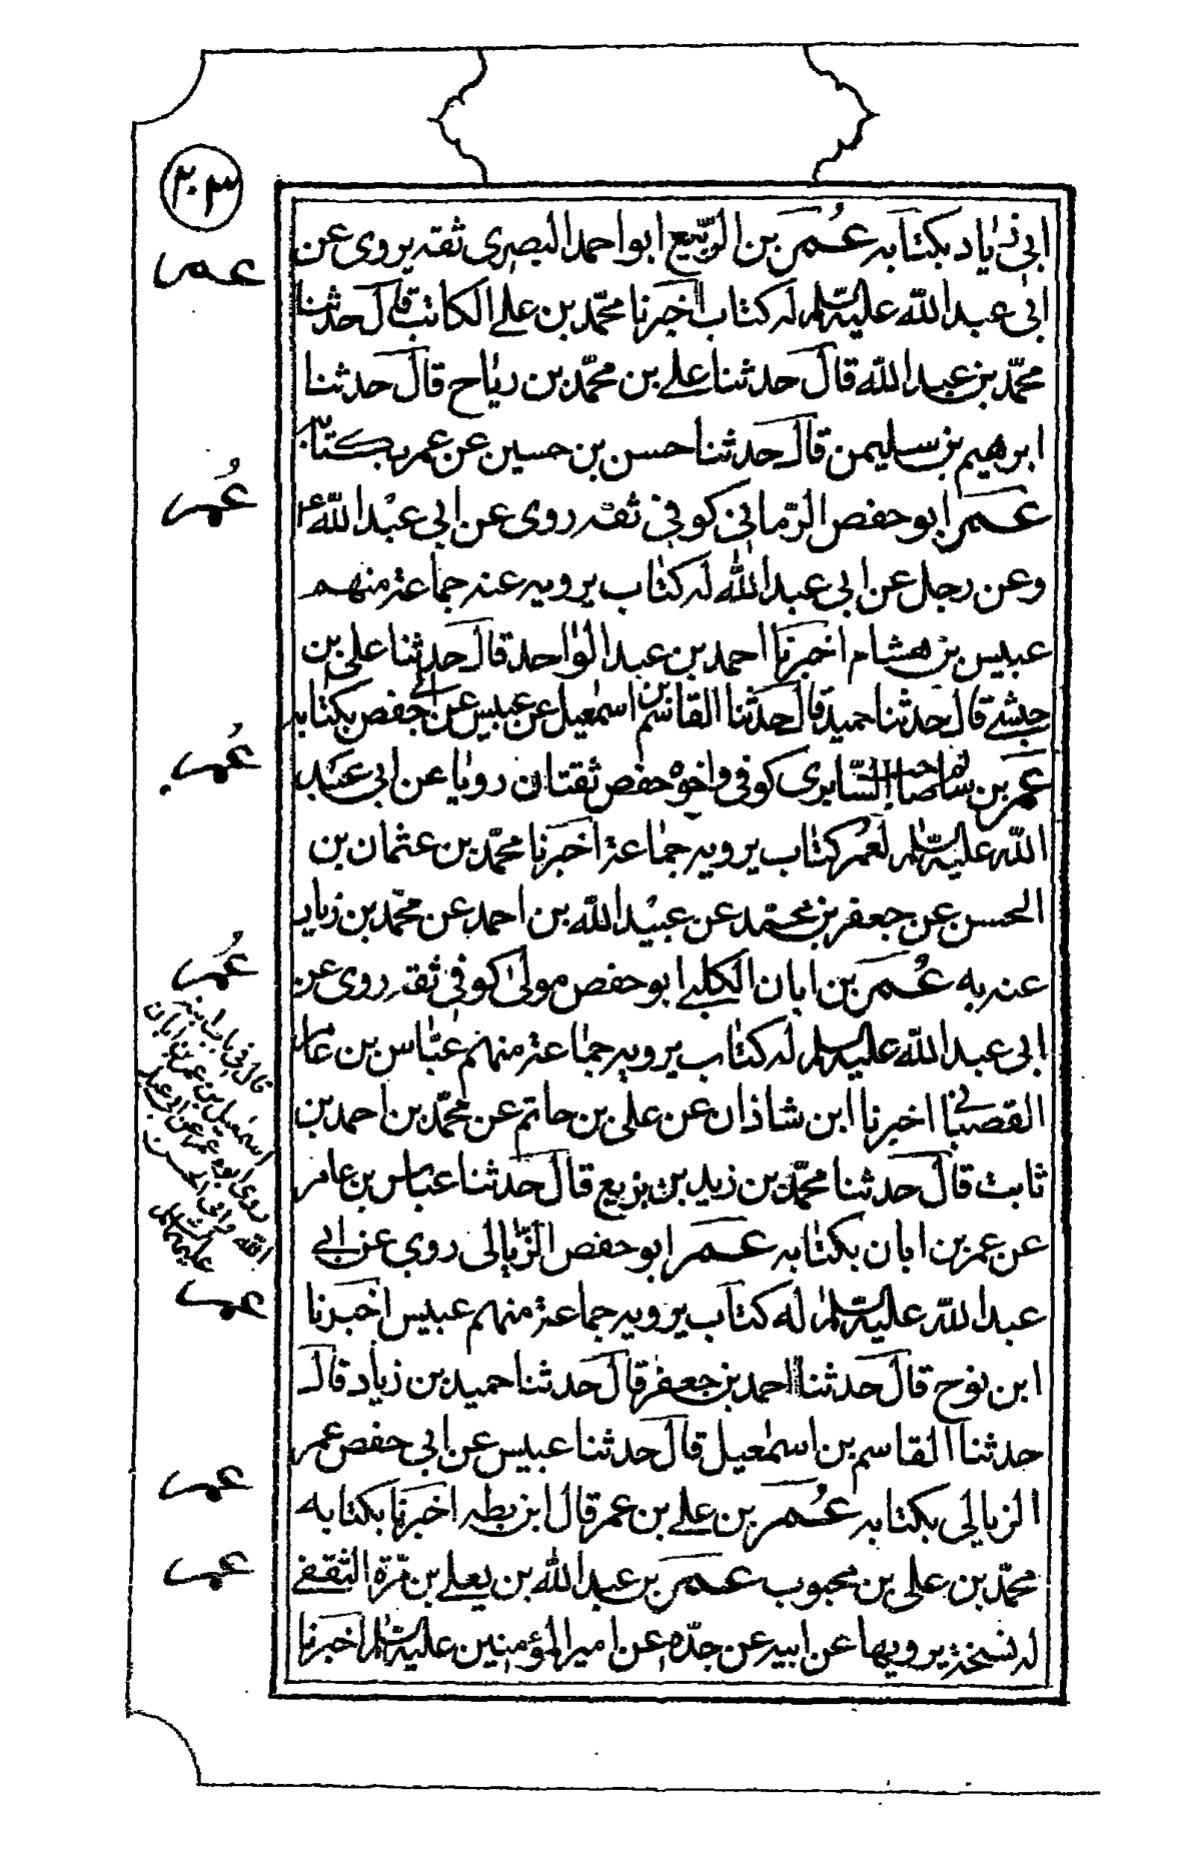 ٢٠٣
ابى زياد بكتابه عُمَر بن الربيع ابو احمد البصرى ثقه يروى عن
عمر
ابى عبدالله عليه السلام له كتاب اخبرنا محمد بن على الكاتب قال حدثنا
محمد بن عبدالله قال حدثنا على بن محمد بن رياح قال حدثنا
ابرهيم بن سليمن قال حدثنا حسن بن حسين عن عمر بكتابه
عمر ابو حفص الرمانى كوفى ثقه روى عن ابى عبدالله ع
عُمر
وعن رجل عن ابى عبدالله له كتاب يرويه عنه جماعة منهم
عبيس بن هشام اخبرنا احمد بن عبدالواحد قال حدثنا على بن
حبشى قال حدثنا حميد قال حدثنا القاسم بن اسمعيل عن عبيس عن ابى حفص بكتابه
عمر بن سالم صاحب السابرى كوفى واخوه حفص ثقتان رويا عن ابى عبد
عُمر
الله عليه السلام لعمر كتاب يرويه جماعة اخبرنا محمد بن عثمان بن
الحسن عن جعفر بن محمد عن عبيدالله بن احمد عن محمد بن زياد
عنه به عُمَر بن ابان الكلبى ابو حفص مولى كوفى ثقه روى عن
عُمر
ابى عبدالله عليه السلام له كتاب يرويه جماعة منهم عباس بن عامر
القصبانى اخبرنا ابن شاذان عن على بن حاتم عن محمد بن احمد بن
ثابت قال حدثنا محمد بن زيد بن بزيع قال حدثنا عباس بن عامر
عن عمر بن ابان بكتابه عمر ابو حفص الزبالى روى عن ابى
قال فى باب ابنه
اسمعيل بن عمر بن ابان
روى ابوه عمر عن ابى عبد
الله وابى الحسن
عليهما السلام
عبدالله عليه السلام له كتاب يرويه جماعة منهم عبيس اخبرنا
عمر
ابن نوح قال حدثنا احمد بن جعفر قال حدثنا حميد بن زياد قال
حدثنا القاسم بن اسمعيل قال حدثنا عبيس عن ابى حفص عمر
الزبالى بكتابه عُمَر بن على بن عمر قال ابن بطه اخبرنا بكتابه
عمر
محمد بن على بن محبوب عمر بن عبدالله بن يعلى بن مرة الثقفى
عمر
له نسخة يرويها عن ابيه عن جده عن امير المؤمنين عليه السلام اخبرنا